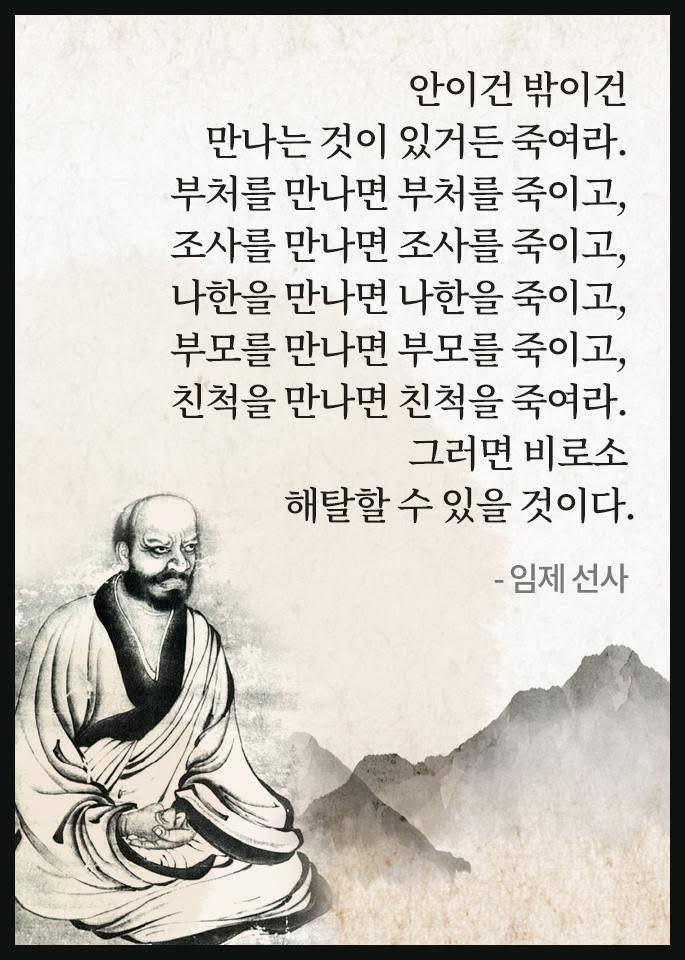 안이건 밖이건
만나는 것이 있거든 죽여라.
부처를 만나면 부처를 죽이고,
조사를 만나면 조사를 죽이고,
나한을 만나면 나한을 죽이고,
부모를 만나면 부모를 죽이고,
친척을 만나면 친척을 죽여라.
그러면 비로소
해탈할 수 있을 것이다.
- 임제 선사